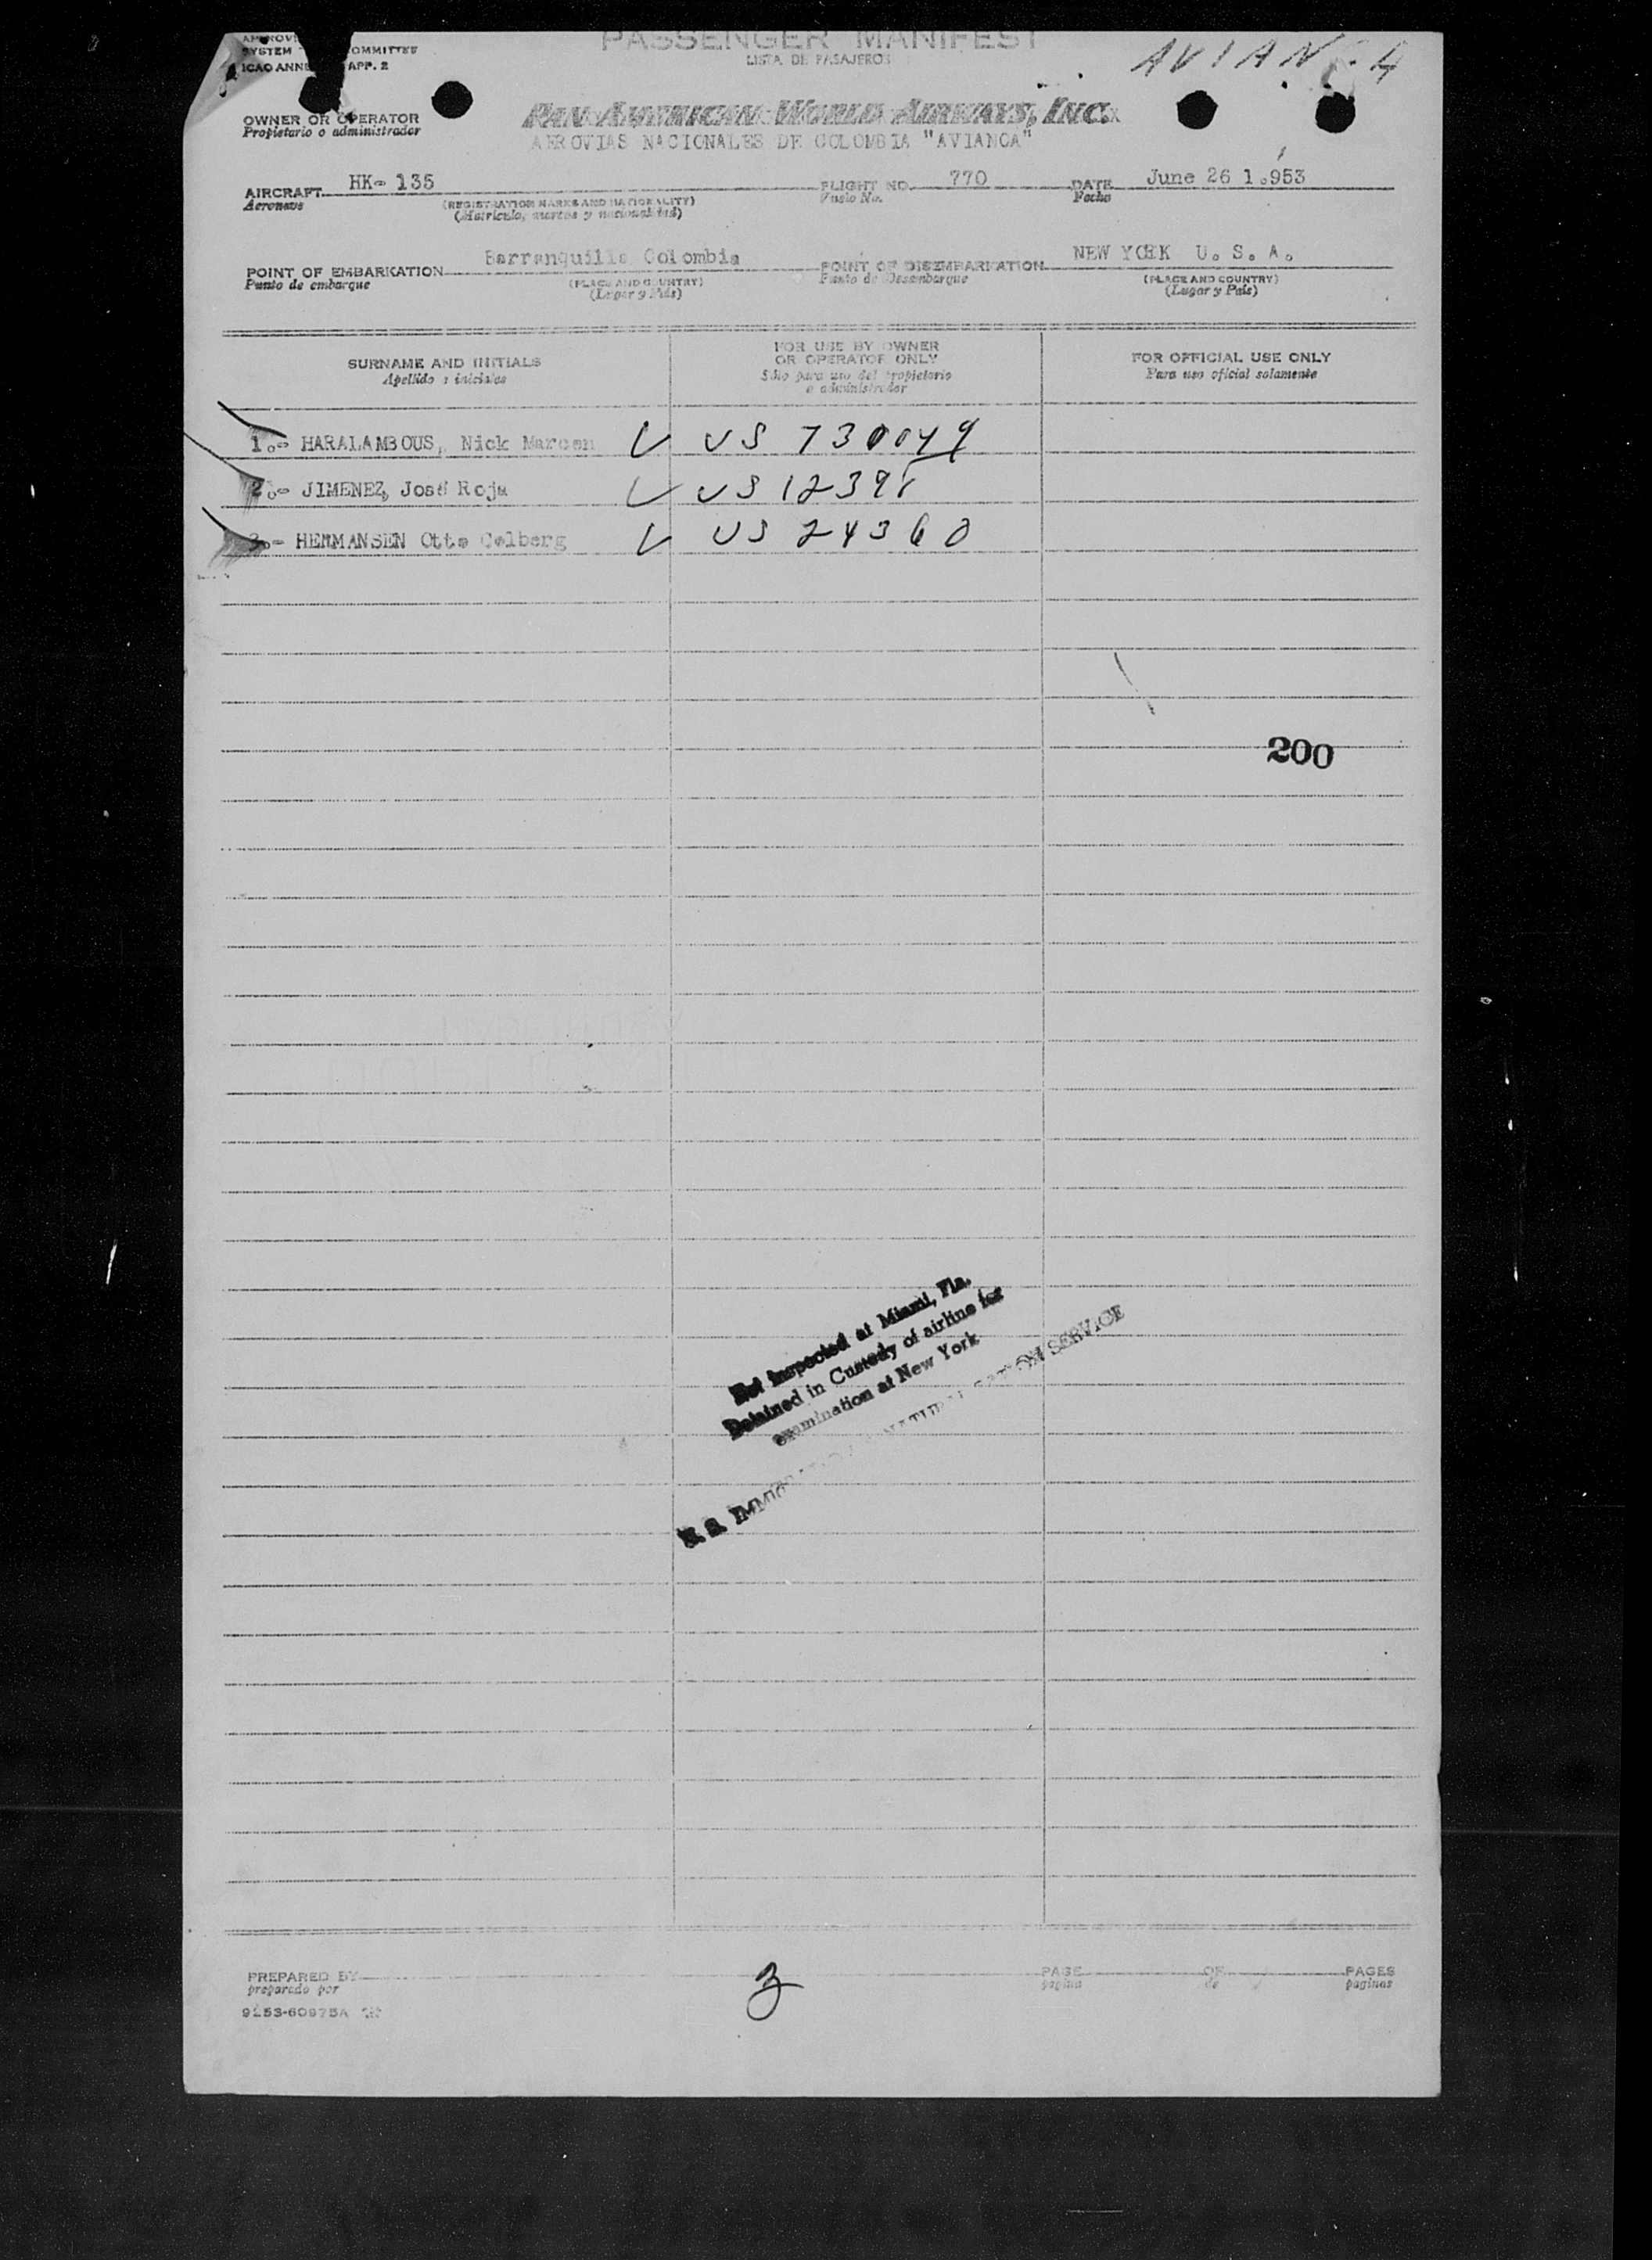 SYSTEM COMMITTEE
ICAO ANNEX APP. 2
PASSENGER MANIFEST
LISTA DE PASAJEROS
AVIANCA
OWNER OR OPERATOR
Propietario o administrador
PAN AMERICAN WORLD AIRWAYS, INC.
AEROVIAS NACIONALES DE COLOMBIA "AVIANCA"
AIRCRAFT HK- 135
Aeronave
(REGISTRATION MARKS AND NATIONALITY)
(Matrícula, marcas y nacionalidad)
FLIGHT NO. 770
Vuelo No.
DATE June 26 1.953
Fecha
POINT OF EMBARKATION Barranquilla Colombia
Punto de embarque
(PLACE AND COUNTRY)
(Lugar y País)
POINT OF DISEMBARKATION NEW YORK U. S. A.
Punto de Desembarque
(PLACE AND COUNTRY)
(Lugar y País)
SURNAME AND INITIALS
Apellido e iniciales
FOR USE BY OWNER
OR OPERATOR ONLY
Sólo para uso del propietario
o administrador
FOR OFFICIAL USE ONLY
Para uso oficial solamente
1.- HARALAMBOUS, Nick US 730049
2.- JIMENEZ, José Roja US 12398
3.- HERMANSEN Otto Colberg US 24360
200
Not Inspected at Miami, Fla.
Detained in Custody of airline for
examination at New York
U. S. IMMIGRATION & NATURALIZATION SERVICE
PREPARED BY
preparado por
3
PAGE OF PAGES
página de páginas
9153-60975A